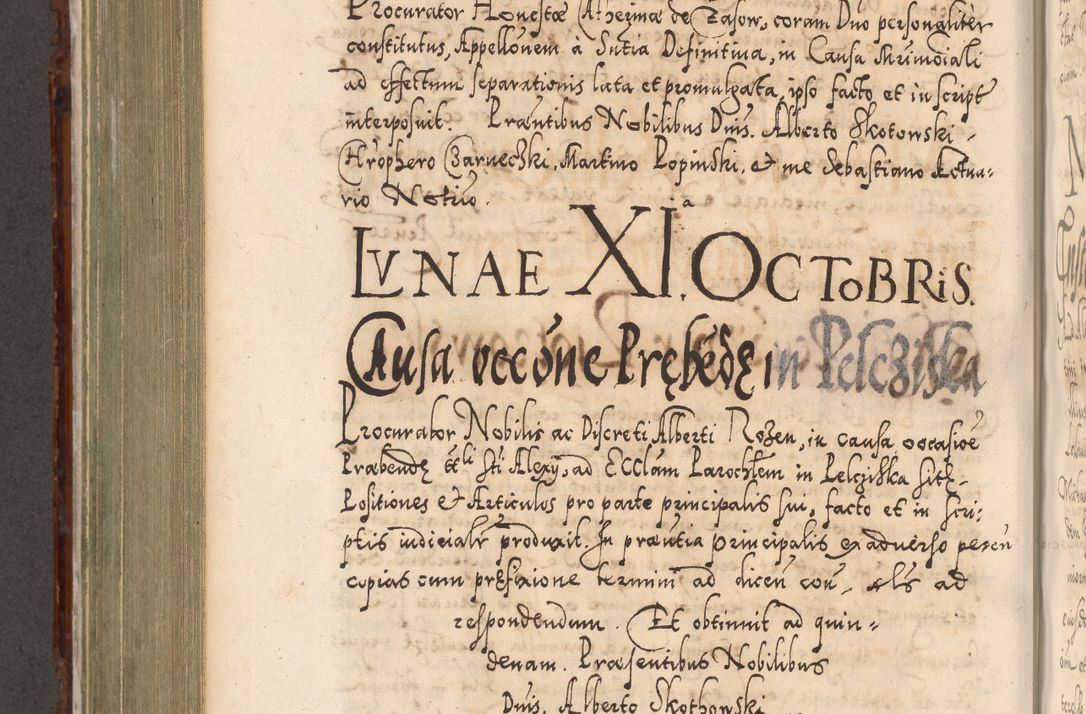 Procurator Honestæ Catherinæ de Zasow, coram Dno personaliter
constitutus, Appellonem à Sntia Definitiva, in Causa Mrimoniali
ad effectum separationis lata et promulgata, ipso facto et in script
interposuit. Præntibus Nobilibus Dnis. Alberto Skotowski -
Chrophero Czarneczki, Martino Lopinski, et me Sebastiano Actua-
rio Notrio.
LVNAE XI.ª OCToBRiS.
Causa occóne Prębédę in Pelcziska
Procurator Nobilis ac Discreti Alberti Rozen, in causa occasióe
Præbendę tt li Sti Alexy, ad Ecclam Parochlem in Pelcziska sitę -
Positiones et Articulos pro parte principalis sui, facto et in scri-
ptis iudicialr produxit. In præntia principalis ex adverso peten
copias cum prefixione termini ad dicen con - els ad
respondendum. Et obtinuit ad quin-
denam. Præsentibus Nobilibus
Dnis. Alberto Skothowski